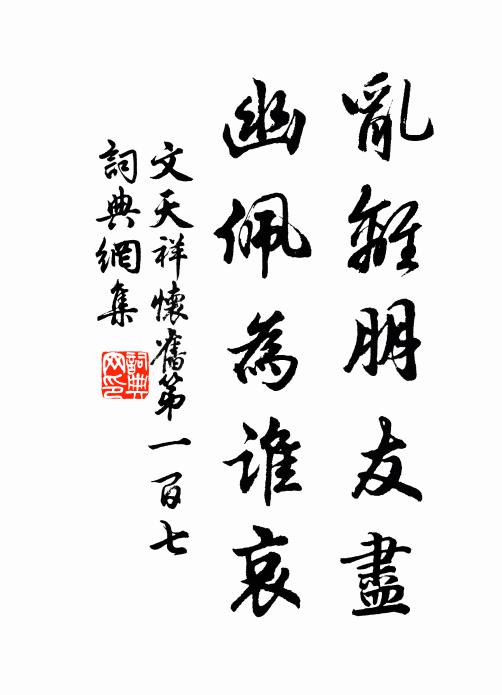 亂離朋友盡
幽佩為誰哀
文天祥懷舊第一百七
詞典網集
詞典
网印